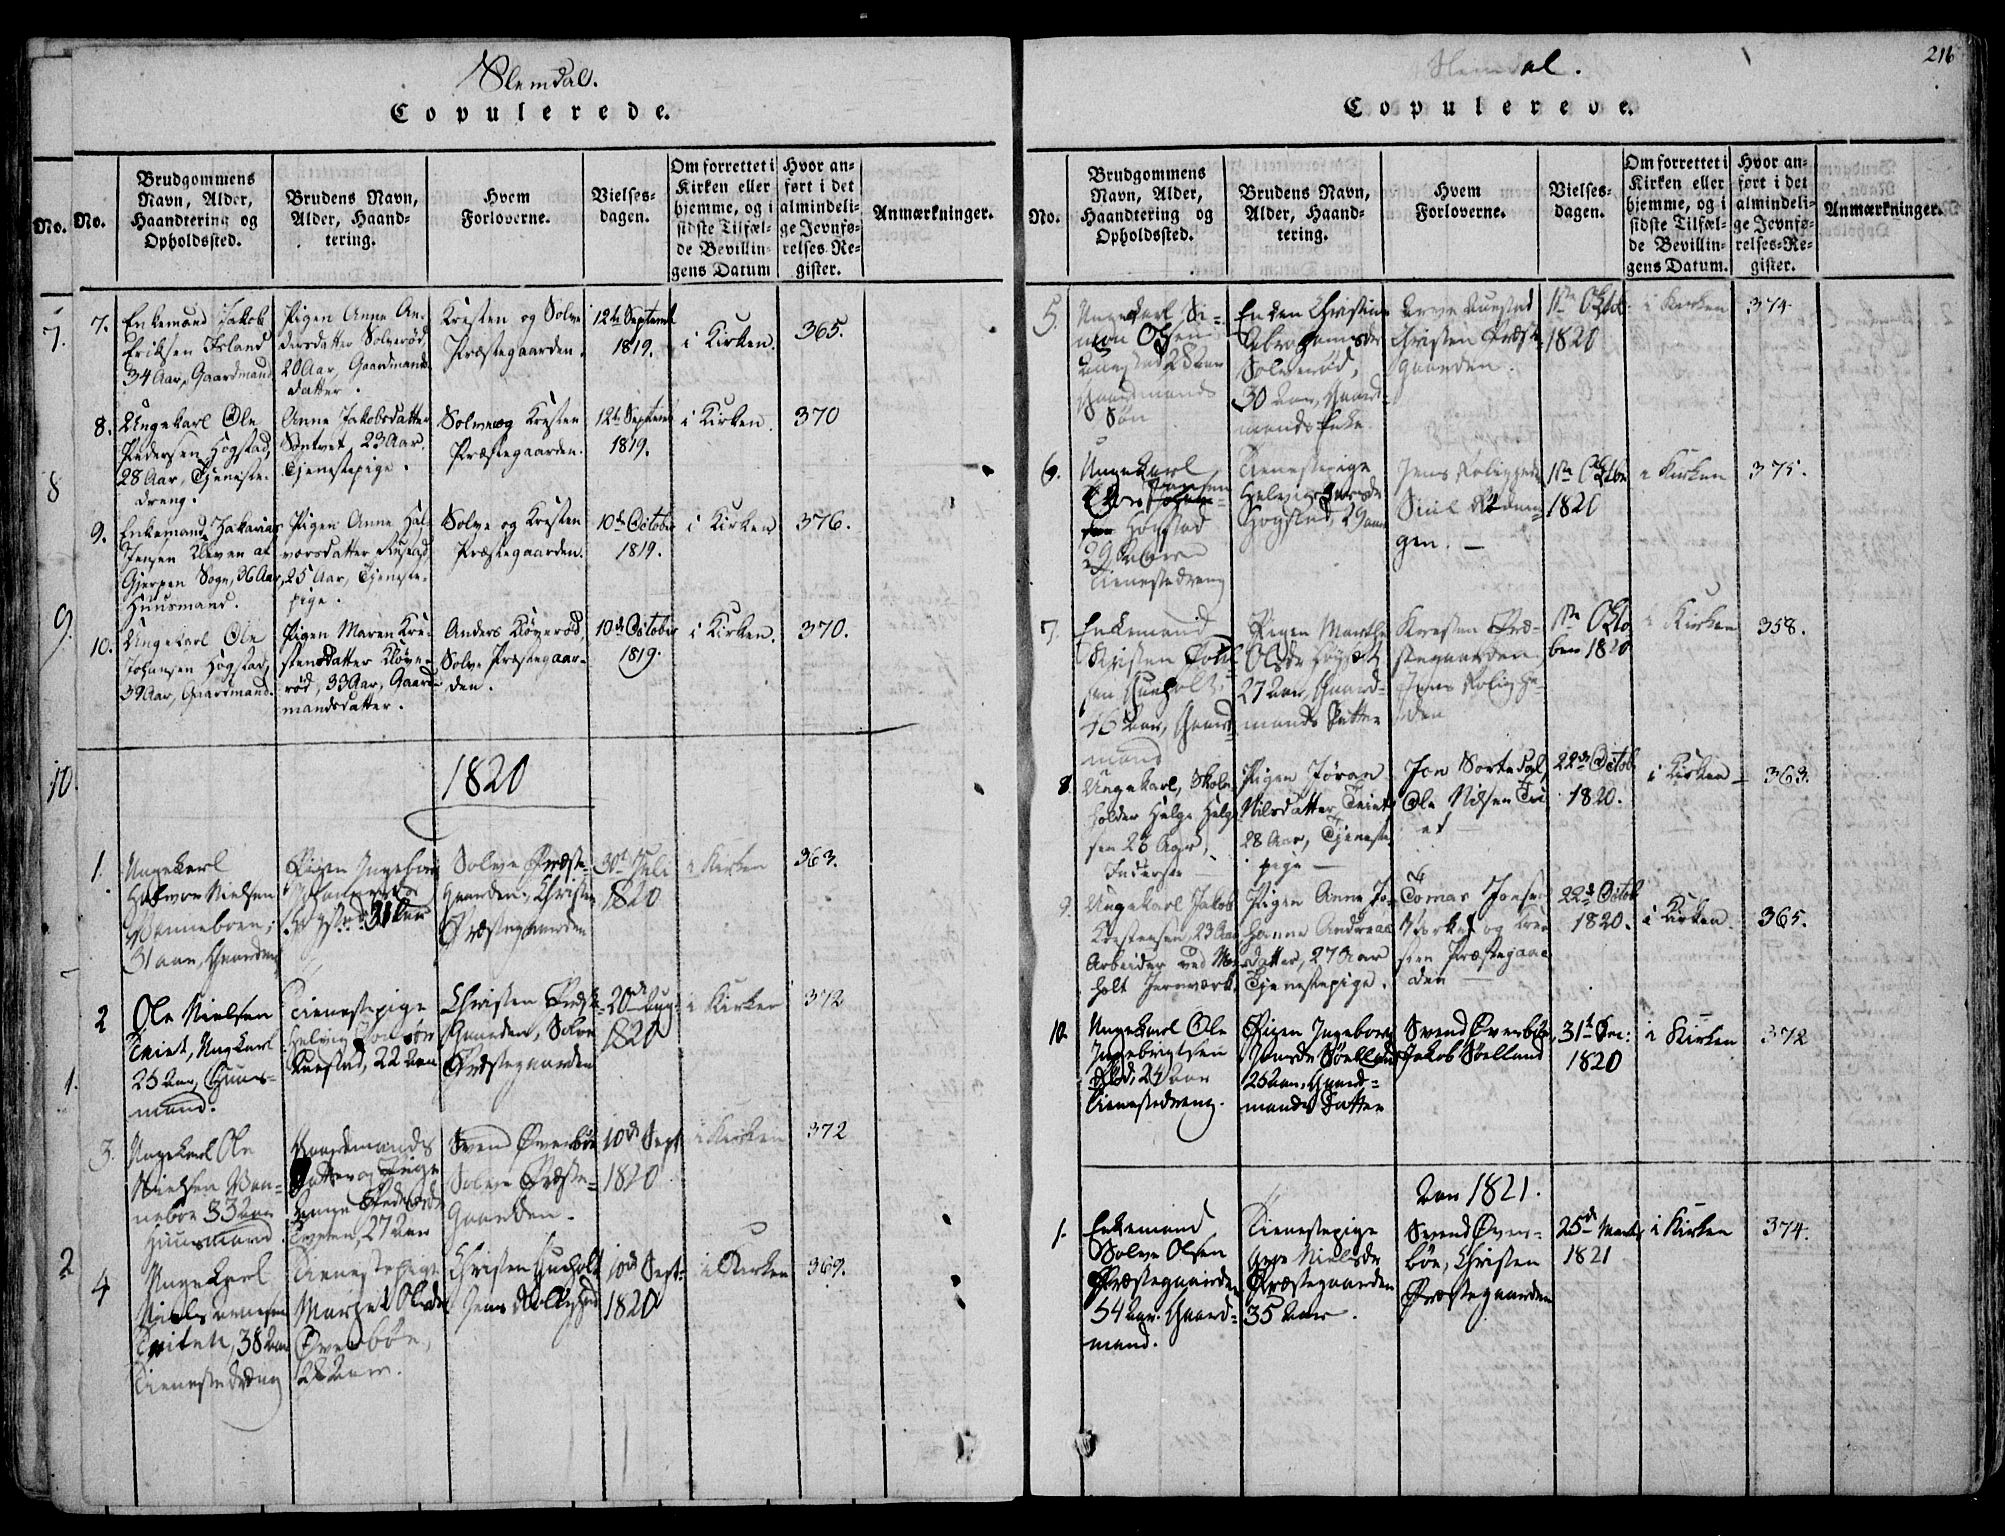 Slemdal.
Copulerede.
No.
No.
Brudgommens
Navn, Alder,
Haandtering og
Opholdssted.
Brudens Navn,
Alder, Haand-
tering.
Hvem
Forloverne.
Vielses-
dagen.
Om forrettet i
Kirken eller
hjemme, og i
sidste Tilfæl-
de Bevillin-
gens Datum
Hvor an-
ført i det
almindeli-
ge Jevnfø-
relses-Re-
gister.
Anmærkninger.
7.
7.
Enkemand Jakob
Eriksen Island
34 Aar, Gaardmand
Pigen Anne An-
dersdatter Solverød,
20 Aar, Gaardmands
datter.
Kresten og Solve
Præstegaarden.
12te Septemb
1819.
i Kirken.
365.
8
8.
Ungekarl Ole
Pedersen Hogstad,
28 Aar, Tjeneste-
dreng.
Anne Jakobsdatter
Sontvet, 23 Aar.
Tjenestepige.
Solve og Kresten
Præstegaarden.
12te Septemb
1819.
i Kirken.
370
9.
Enkemand Zakarias
Jensen Kleven af
Gjerpen Sogn, 36 Aar,
Huusmand.
Pigen Anne Hal-
vorsdatter Rustad,
25 Aar, Tjeneste-
pige.
Solve og Kresten
Præstegaarden.
10de October
1819.
i Kirken
376.
9.
10.
Ungekarl Ole
Johansen Hogstad,
39 Aar, Gaardmand.
Pigen Maren Kre-
stensdatter Kløve-
rød, 33 Aar, Gaard-
mandsdatter.
Anders Kløverød,
Solve Præstegaar-
den.
10de October
1819.
i Kirken.
370.
10
1820
1.
Ungekarl
Halvor Nielsen
31 Aar,
Pigen Ingeborg
31 Aar
Solve Præste-
gaarden, Christen
Præstegaarden
30te Juli
1820
i Kirken
363.
2
Ole Nielsen
Tviet, Ungkarl
25 Aar, Huus-
mand.
Tienestepige
Helvig
22 Aar
Christen Præste-
gaarden, Solve
Præstegaarden
20de Aug:
1820
i Kirken
372
1.
3.
Ungekarl Ole
Nielsen Van-
neboe 33 Aar
Huusmand.
Gaardmands
Datter og Pige
27 Aar
Svend Øverbøe
Solve Præste-
gaarden.
10de Sept
1820
i Kirken
372
2
4
Ungekarl
Tviten, 38 Aar
Tienestedreng
Tienestepige
Margret Olsdr
Øverbøe,
28 Aar.
Christen Hueholt
10de Sept:
1820
i Kirken
369.
Slemdal.
216
Copulerede.
No.
Brudgommens
Navn, Alder,
Haandtering og
Opholdssted.
Brudens Navn,
Alder, Haand-
tering.
Hvem
Forloverne.
Vielses-
dagen.
Om forrettet i
Kirken eller
hjemme, og i
sidste Tilfæl-
de Bevillin-
gens Datum.
Hvor an-
ført i det
almindeli-
ge Jevnfø-
relses-Re-
gister.
Anmærkninger.
5.
Ungekarl Si-
mon Olsen
28 Aar
Gaardmands
Søn
Enken Christine
Abrahamsdr
Solverød,
30 Aar, Gaard-
mands Enke
Christen Præste-
gaarden.
1ste Oktob:
1820
i Kirken
374
6.
Ungekarl
Hogstad
29 Aar
Tienestedreng
Tienestepige
Helvig
Hogstad, 29 Aar
1ste Oktbr
1820
i Kirken
375.
7.
Enkemand
Kristen
46 Aar, Gaard-
mand
Pigen Marthe
Olsdr
27 Aar, Gaard-
mands Datter
Kresten Præ-
stegaarden
1ste Okto
ber 1820
i Kirken
358.
8.
Ungekarl, Skole-
holder Helge Helge-
sen 26 Aar,
Inderste
Pigen Jøran
Nilsdatter Tviet
28 Aar, Tjeneste-
pige
Jon Sortedal,
Ole Nilsen Tvi
et
22de Octob
1820.
i Kirken
363.
9.
Ungekarl Jakob
Krestensen, 23 Aar
Arbeider ved Mos-
holt Jernværk.
Pigen Anne Jo-
hanne Andreas
datter, 27 Aar
Tjenestepige.
Tomas Jonsen
og Kre-
sten Præstegaar-
den
22de Octob
1820.
i Kirken.
365.
10.
Ungekarl Ole
Ingebrigtsen
24 Aar
Tienestedreng.
Pigen Ingeborg
Søelland
25 Aar, Gaard-
mands Datter
Svend Øverbøe,
Jakob Søelland
31te Dec:
1820
i Kirken
372
Aar 1821.
1.
Enkemand
Solve Olsen
Præstegaarden
54 Aar. Gaard-
mand.
Tienestepige
Nielsdr
Præstegaarden
35 Aar.
Svend Øver-
bøe, Christen
Præstegaarden
25de Marts
1821
i Kirken
374.